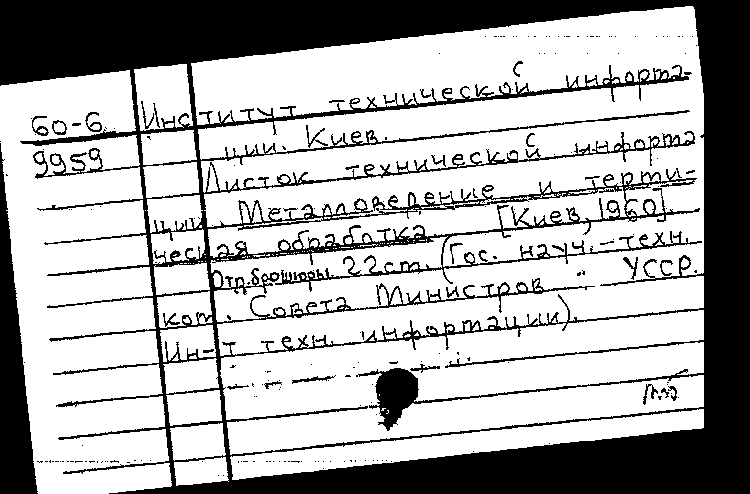 60-6 Институт технической информа-
9959 ции. Киев.
Листок технической информа-
ции. Металловедение и терми-
ческая обработка. [Киев, 1960].
Отд. брошюры. 22 см. (Гос. науч.-техн.
ком. Совета Министров УССР.
Ин-т техн. информации).